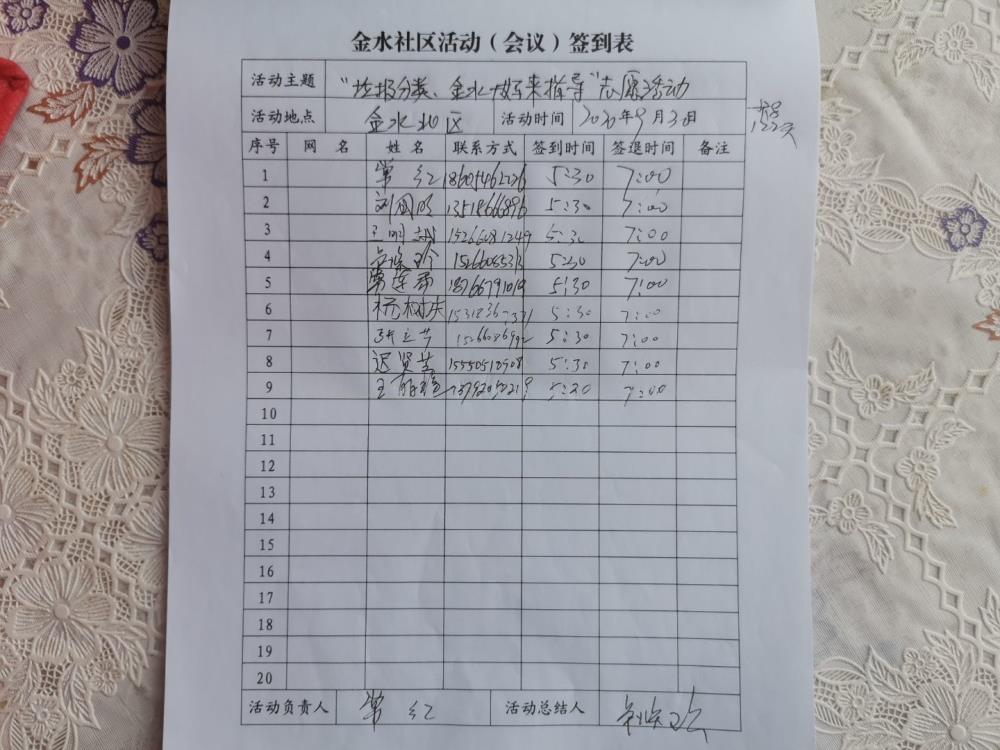 金水社区活动（会议）签到表
活动主题 “垃圾分类、金水好来指导”志愿活动
活动地点 金水社区 活动时间 2020年9月3日
122天
序号 网 名 姓 名 联系方式 签到时间 签退时间 备注
1 常红 18605462226 5:30 7:00
2 刘国明 13518666896 5:30 7:00
3 15266081249 5:30 7:00
4 5:30 7:00
5 常莲香 18766791019 5:30 7:00
6 杨树庆 5:30 7:00
7 5:30 7:00
8 迟贤芝 15550510908 5:30 7:00
9 王 5:30 7:00
10
11
12
13
14
15
16
17
18
19
20
活动负责人 常红 活动总结人